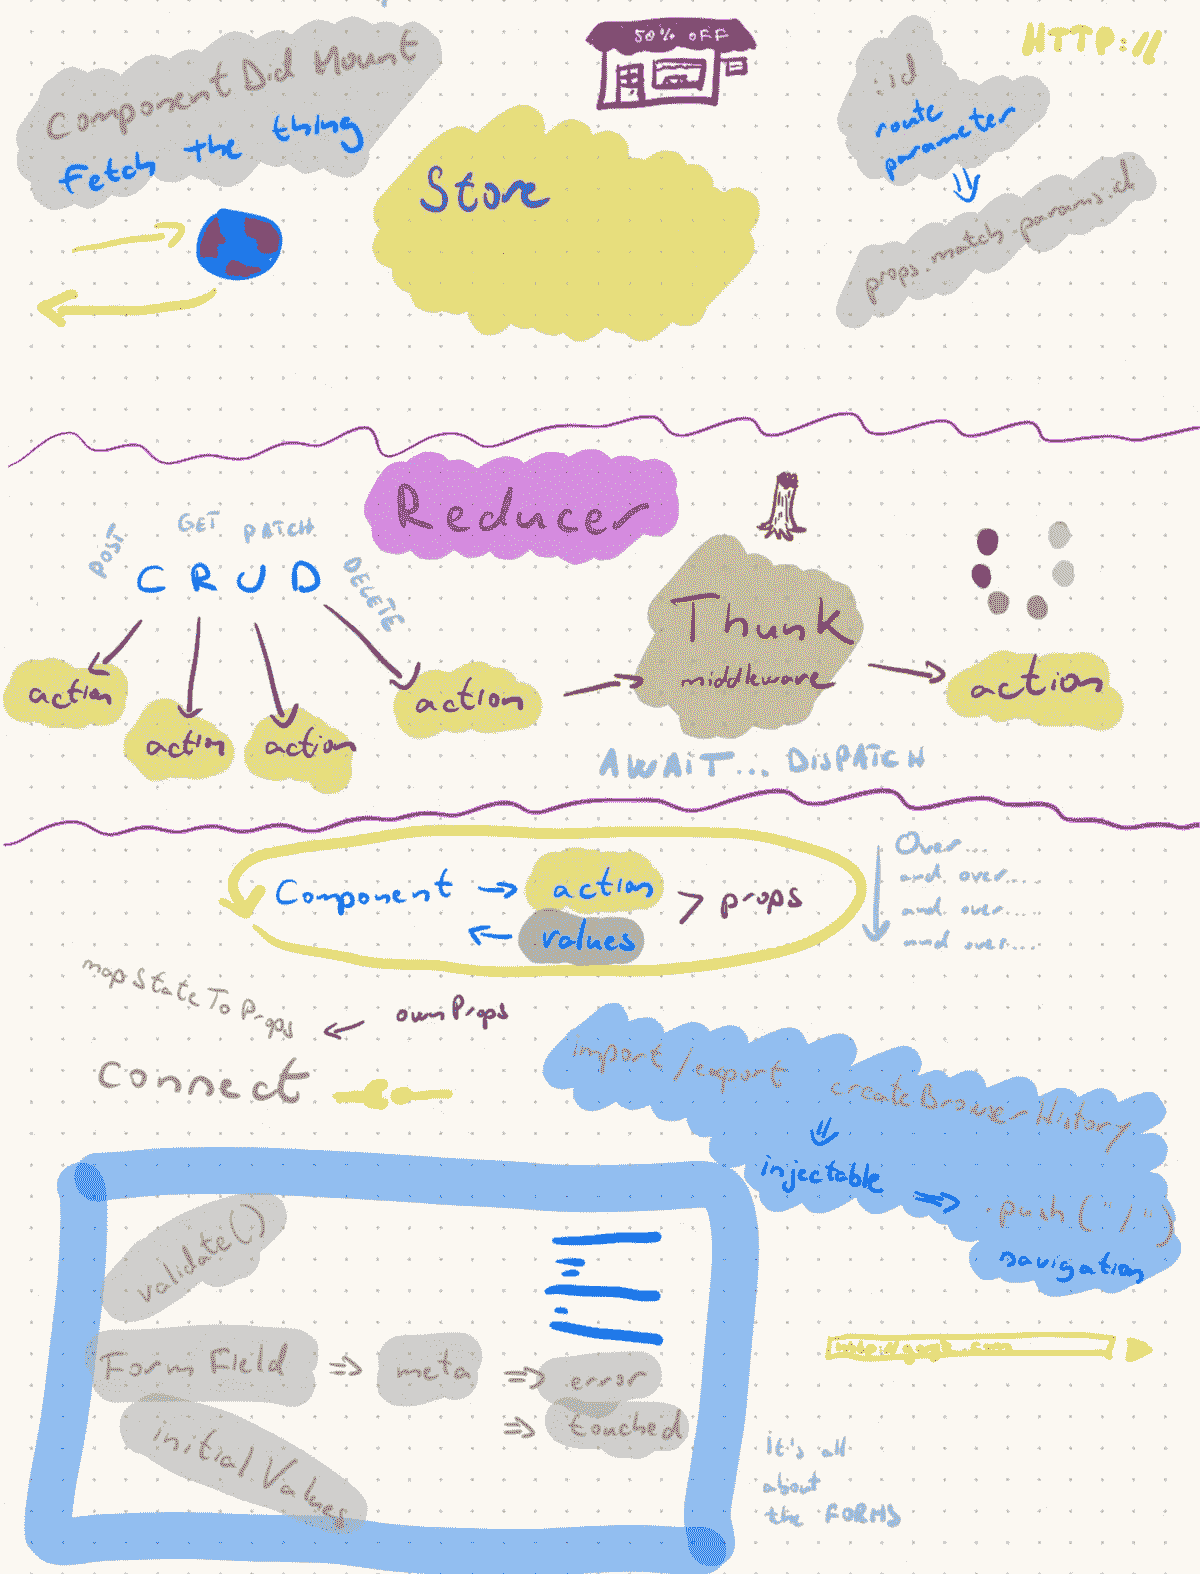 Component Did Mount
Fetch the thing
50% OFF
Store
:id
route
parameter
props.match.params.id
HTTP://
Reducer
POST
GET
PATCH
DELETE
C R U D
action
action
action
action
Thunk
middleware
action
AWAIT... DISPATCH
Component
action
values
props
Over...
and over...
and over....
and over....
mapStateToProps
ownProps
Connect
import/export
createBrowserHistory
injectable
.push("/")
navigation
validate()
Form Field
meta
error
touched
initialValues
it's all
about
the FORMS